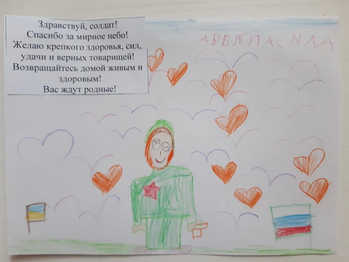 Здравствуй, солдат!
Спасибо за мирное небо!
Желаю крепкого здоровья, сил,
удачи и верных товарищей!
Возвращайтесь домой живым и
здоровым!
Вас ждут родные!